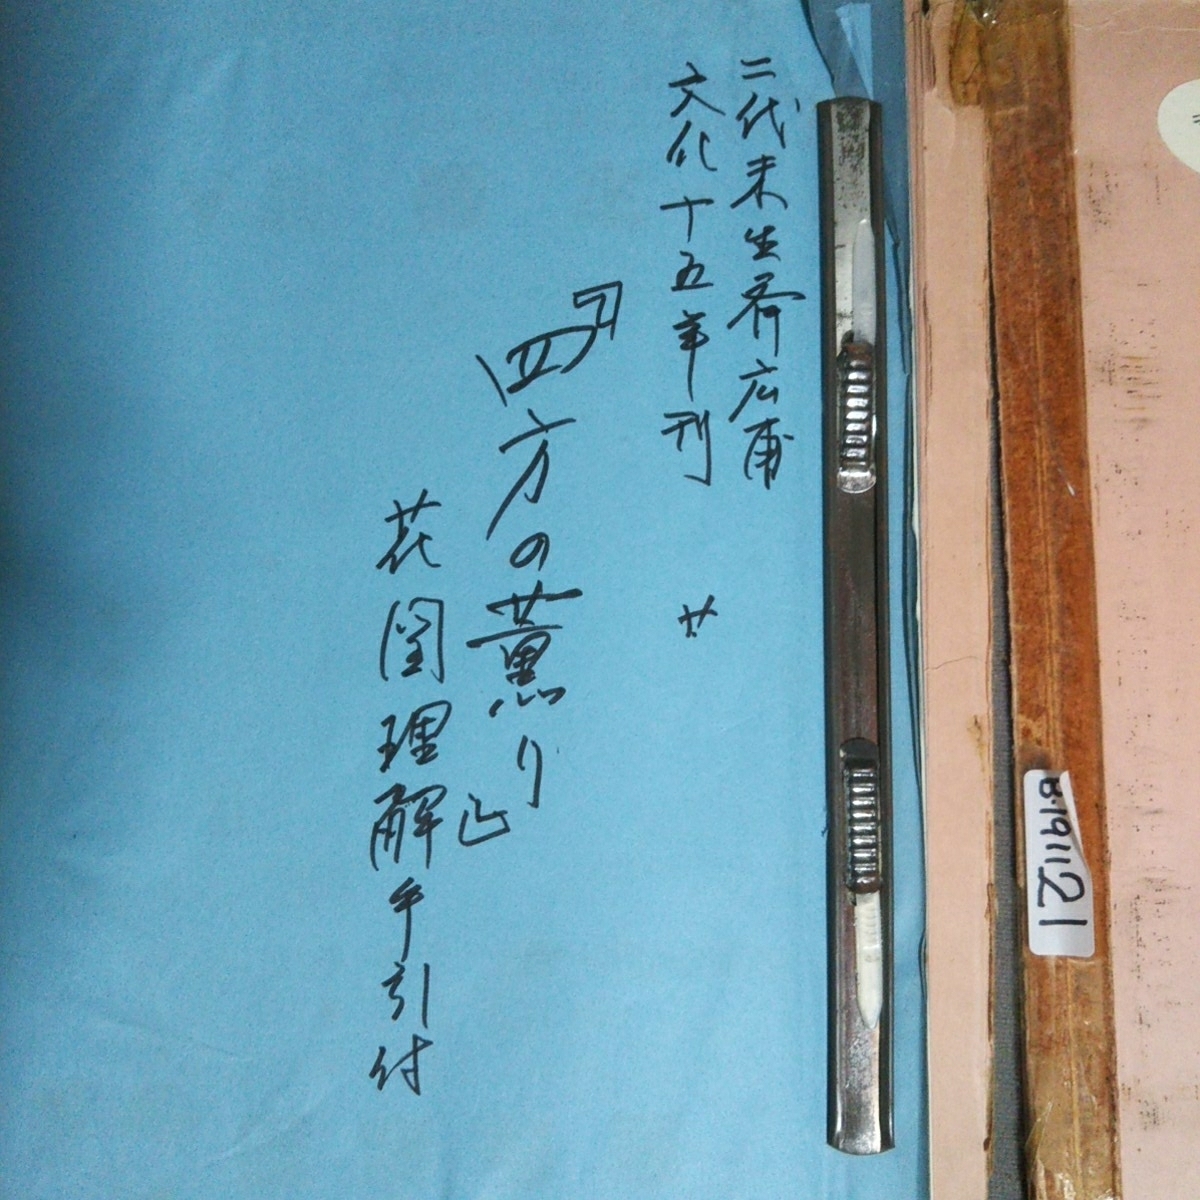 B.191121
二代未生斎広甫
文化十五年刊 廿
『四方の薫り』
花図理解手引付